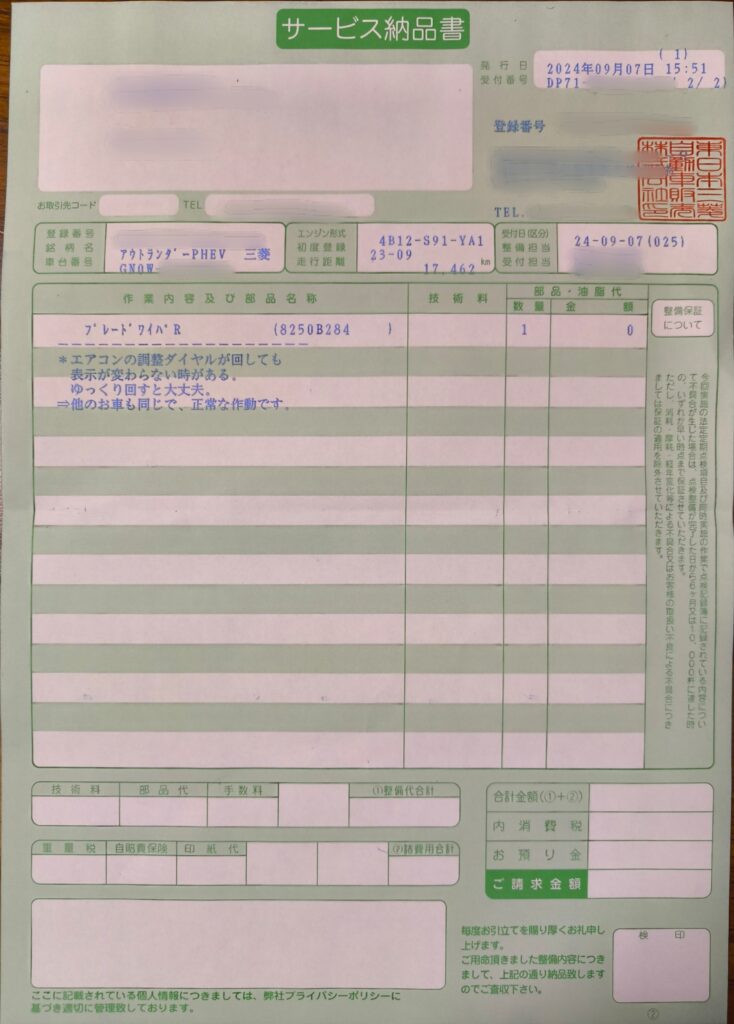 サービス納品書
( 1)
発行日 2024年09月07日 15:51
受付番号 DP71- ( 2/ 2)
登録番号
TEL.
東日本三菱自動車販売株式会社
お取引先コード TEL
登録番号
銘柄名 アウトランダーPHEV 三菱
車台番号 GN0W-
エンジン形式 4B12-S91-YA1
初度登録 23-09
走行距離 17,462 km
受付日(区分) 24-09-07(025)
整備担当
受付担当
作業内容及び部品名称 技術料 部品・油脂代
数量 金額
整備保証
について
ブレードワイパR (8250B284 ) 1 0
*エアコンの調整ダイヤルが回しても
表示が変わらない時がある。
ゆっくり回すと大丈夫。
⇒他のお車も同じで、正常な作動です。
今回実施の法定定期点検項目及び同時実施の作業で点検記録簿に記録されている内容につい
て不具合が生じた場合は、点検整備が完了した日から6ヶ月又は10,000粁に達した時
の、いずれか早い時点まで保証させていただきます。
ただし、消耗・摩耗・経年変化等による不具合又はお客様の取扱い不良による不具合につき
ましては保証の適用を除外させていただきます。
技術料 部品代 手数料 ①整備代合計
重量税 自賠責保険 印紙代 ②諸費用合計
合計金額(①+②)
内消費税
お預り金
ご請求金額
毎度お引立てを賜り厚くお礼申し
上げます。
ご用命頂きました整備内容につき
まして、上記の通り納品致します
のでご査収下さい。
検印
②
ここに記載されている個人情報につきましては、弊社プライバシーポリシーに
基づき適切に管理致しております。